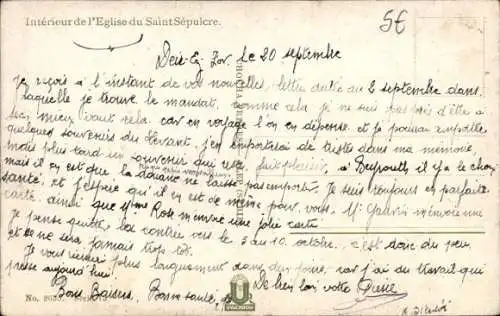 Intérieur de l'Eglise du Saint Sépulcre.
5€
Deir-Ez-Zor, le 20 septembre
je reçois à l'instant de vos nouvelles, lettre datée du 2 septembre dans
laquelle je trouve le mandat, comme cela je ne suis pas près d'être à
sec, mieux vaut cela, car en voyage l'on en dépense. et je pourrai
quelques souvenirs du Levant, j'en emporterai de tristes dans ma mémoire,
mais plus tard un souvenir qui vous fait plaisir, à Beyrouth il y a le choix
mais il en est que la douane ne laisse pas emporter. Je suis toujours en parfaite
santé, et j'espère qu'il en est de même pour vous. Mr m'envoie une
carte ainsi que Mme Rose m'envoie une jolie carte
Je pense quitter les contrées vers le 3 au 10 octobre, c'est donc du peu
et ce ne sera jamais trop tôt.
Je vous écrirai plus longuement dans des jours, car j'ai du travail qui
presse aujourd'hui.
Bons Baisers, Bonne santé, De loin votre Pierre
No.